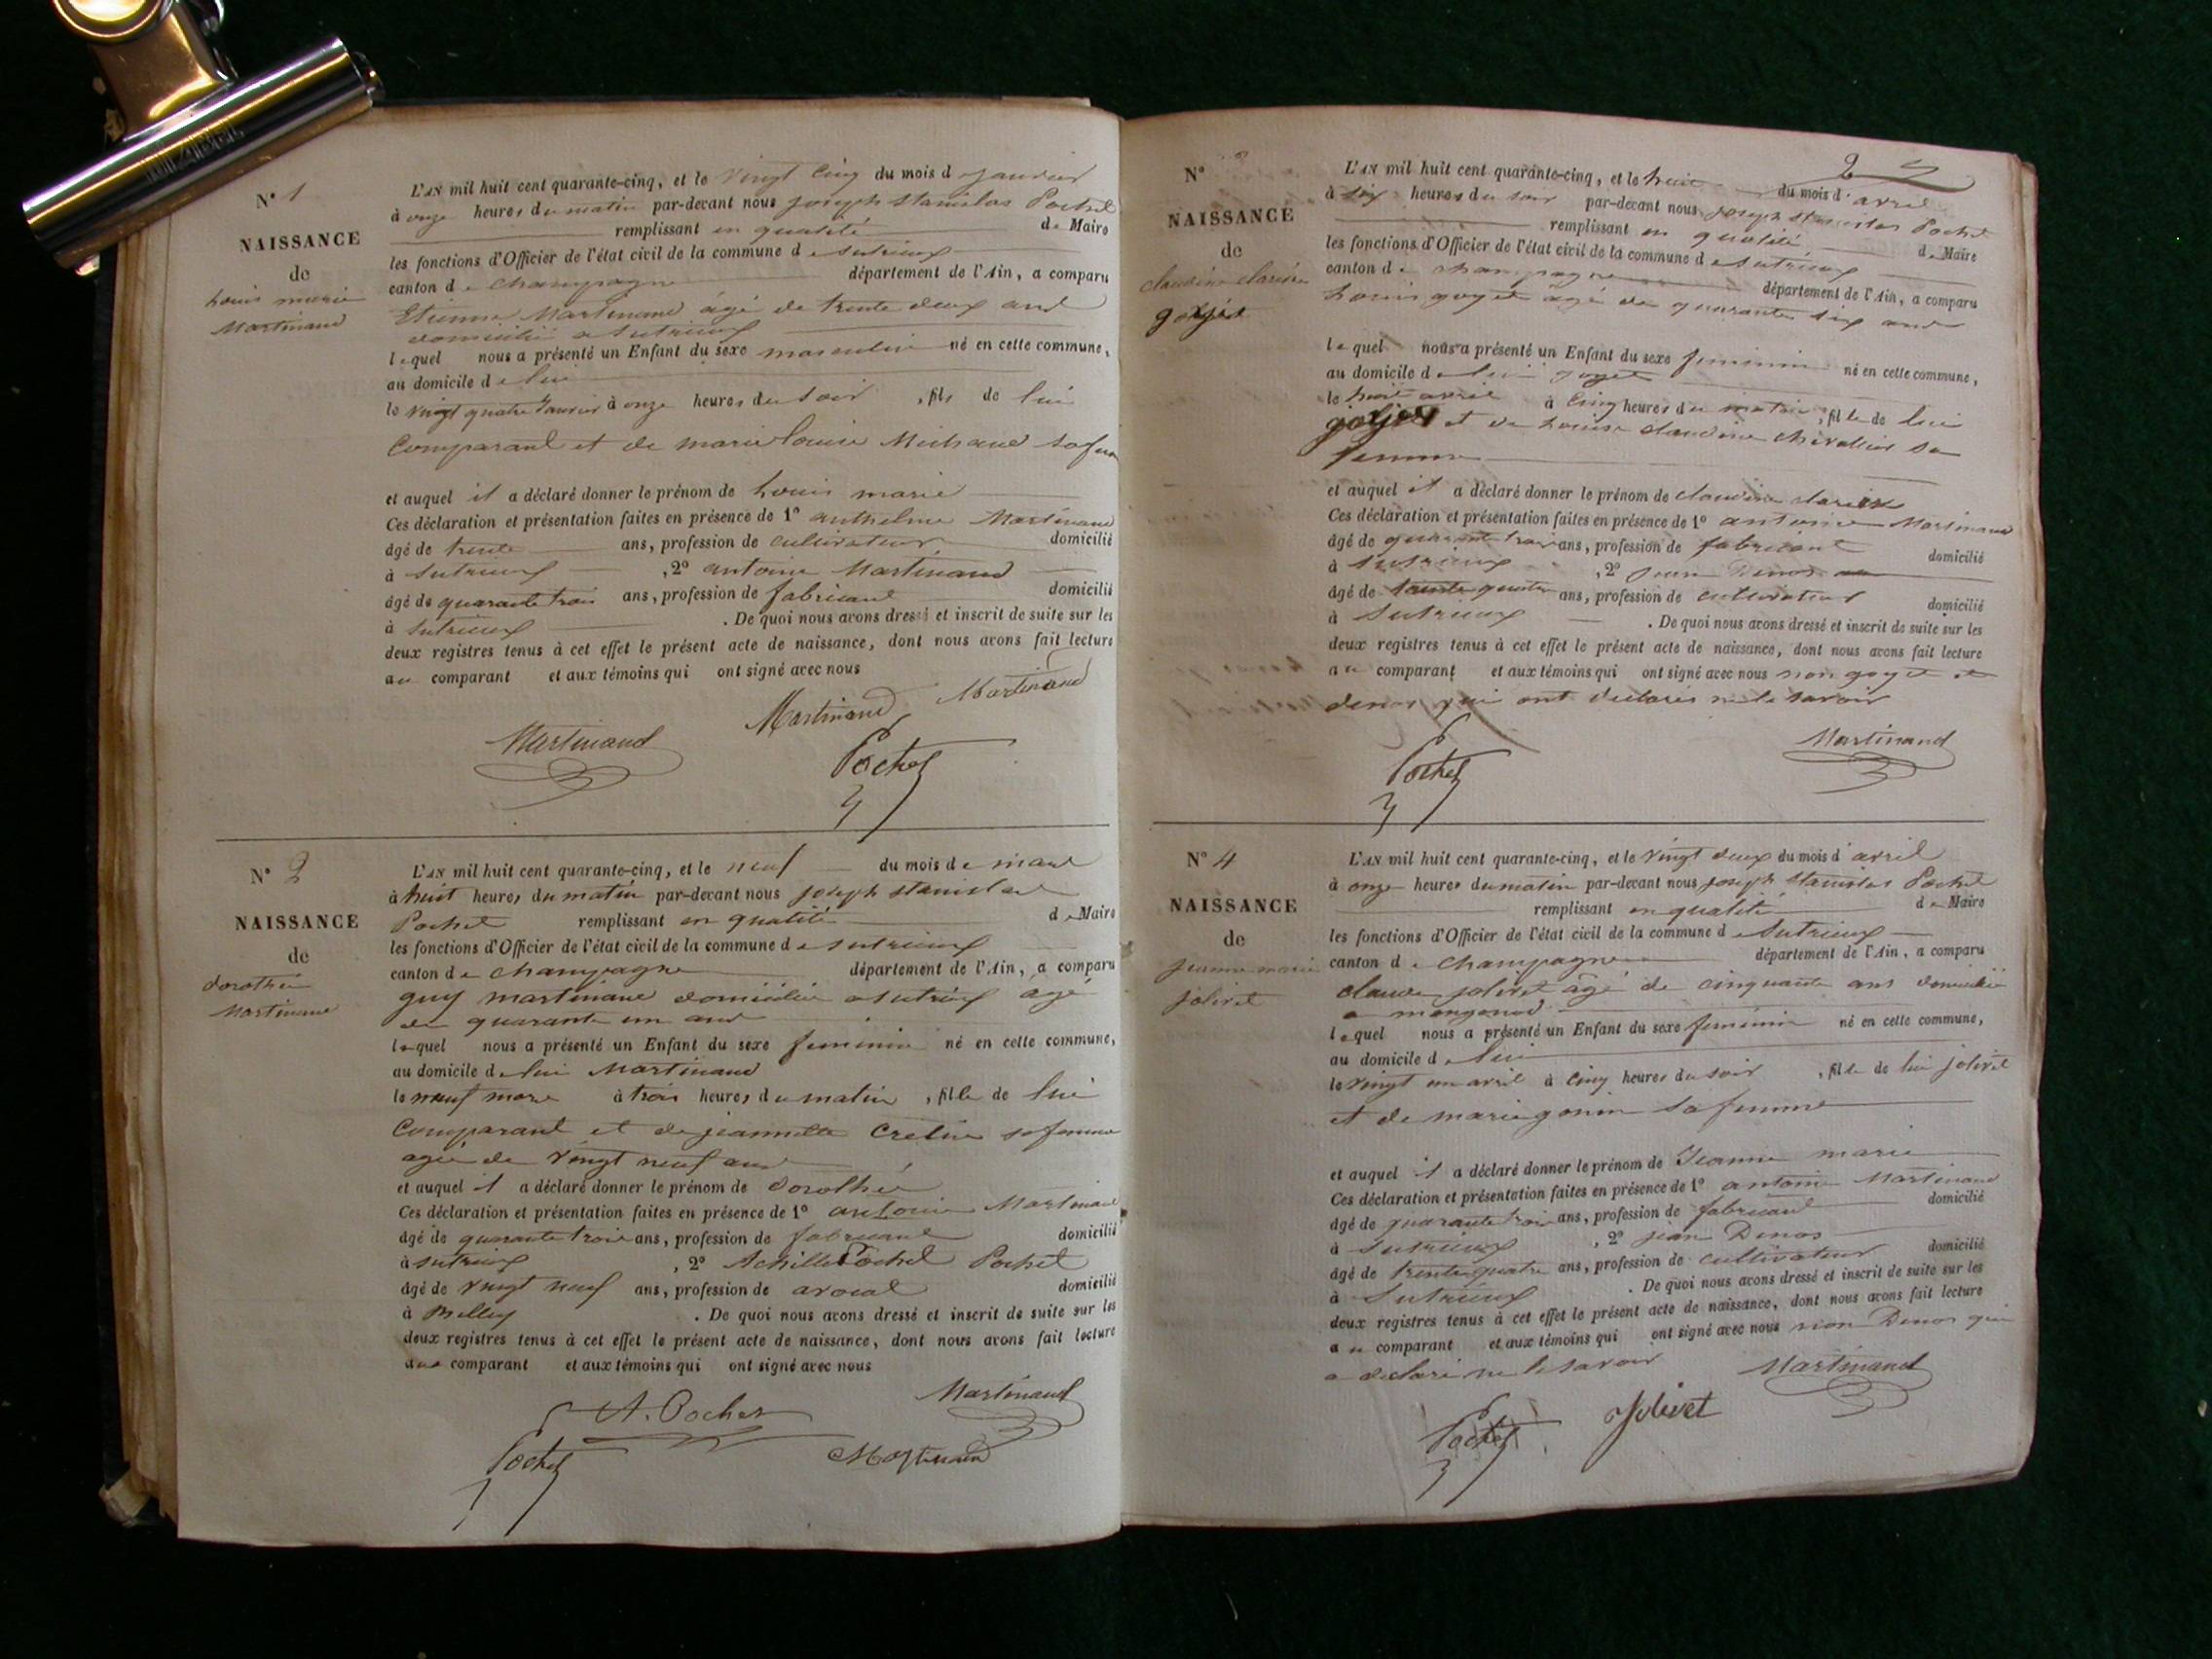 N° 1
NAISSANCE
de
Louis marie
Martinand
L'AN mil huit cent quarante-cinq, et le vingt cinq du mois d janvier
à onze heures du matin par-devant nous joseph stanislas Pochet
remplissant en qualité de Maire
les fonctions d'Officier de l'état civil de la commune de Sutrieux
canton de champagne département de l'Ain, a comparu
Etienne Martinand âgé de trente deux ans
domicilié a Sutrieux
lequel nous a présenté un Enfant du sexe masculin né en cette commune,
au domicile de lui
le vingt quatre Janvier à onze heures du soir, fils de lui
Comparant et de marie louise Michaud sa
et auquel il a déclaré donner le prénom de Louis marie
Ces déclaration et présentation faites en présence de 1° anthelme Martinand
âgé de trente ans, profession de cultivateur domicilié
à Sutrieux, 2° antoine Martinand
âgé de quarante trois ans, profession de fabricant domicilié
à Sutrieux. De quoi nous avons dressé et inscrit de suite sur les
deux registres tenus à cet effet le présent acte de naissance, dont nous avons fait lecture
au comparant et aux témoins qui ont signé avec nous
Martinand Martinand Martinand
Pochet
N° 2
NAISSANCE
de
dorothée
Martinand
L'AN mil huit cent quarante-cinq, et le neuf du mois de mars
à huit heures du matin par-devant nous joseph stanislas
Pochet remplissant en qualité de Maire
les fonctions d'Officier de l'état civil de la commune de Sutrieux
canton de champagne département de l'Ain, a comparu
guy martinand domicilié a Sutrieux âgé
de quarante un ans
lequel nous a présenté un Enfant du sexe feminin né en cette commune,
au domicile de lui Martinand
le neuf mars à trois heures du matin, fille de lui
Comparant et de jeannette Cretin sa femme
agée de vingt neuf ans
et auquel il a déclaré donner le prénom de dorothée
Ces déclaration et présentation faites en présence de 1° antoine Martinand
âgé de quarante trois ans, profession de fabricant domicilié
à Sutrieux, 2° Achille Pochet Pochet
âgé de vingt neuf ans, profession de avocat domicilié
à Belley. De quoi nous avons dressé et inscrit de suite sur les
deux registres tenus à cet effet le présent acte de naissance, dont nous avons fait lecture
comparant et aux témoins qui ont signé avec nous
A. Pochet Martinand
Pochet Martinand
2
N°
NAISSANCE
de
claudine
L'AN mil huit cent quarante-cinq, et le huit du mois d'avril
à six heures du soir par-devant nous joseph stanislas Pochet
remplissant en qualité de Maire
les fonctions d'Officier de l'état civil de la commune de Sutrieux
canton de champagne département de l'Ain, a comparu
Louis goyet âgé de quarante six ans
lequel nous a présenté un Enfant du sexe feminin né en cette commune,
au domicile de lui goyet
le huit avril à cinq heures du matin, fille de lui
et de Louise claudine chevallier sa
femme
et auquel il a déclaré donner le prénom de claudine
Ces déclaration et présentation faites en présence de 1° antoine Martinand
âgé de quarante trois ans, profession de fabricant domicilié
à Sutrieux, 2° jean Dinos
âgé de trente quatre ans, profession de cultivateur domicilié
à Sutrieux. De quoi nous avons dressé et inscrit de suite sur les
deux registres tenus à cet effet le présent acte de naissance, dont nous avons fait lecture
au comparant et aux témoins qui ont signé avec nous non goyet et
dinos qui ont déclarés ne le savoir
Pochet Martinand
N° 4
NAISSANCE
de
jeanne marie
jolivet
L'AN mil huit cent quarante-cinq, et le vingt deux du mois d'avril
à onze heures du matin par-devant nous joseph stanislas Pochet
remplissant en qualité de Maire
les fonctions d'Officier de l'état civil de la commune de Sutrieux
canton de champagne département de l'Ain, a comparu
claude jolivet âgé de cinquante ans domicilié
a mongonod
lequel nous a présenté un Enfant du sexe feminin né en cette commune,
au domicile de lui
le vingt un avril à cinq heures du soir, fille de lui jolivet
et de marie gonin sa femme
et auquel il a déclaré donner le prénom de Jeanne marie
Ces déclaration et présentation faites en présence de 1° antoine Martinand
âgé de quarante trois ans, profession de fabricant domicilié
à Sutrieux, 2° jean Dinos
âgé de trente quatre ans, profession de cultivateur domicilié
à Sutrieux. De quoi nous avons dressé et inscrit de suite sur les
deux registres tenus à cet effet le présent acte de naissance, dont nous avons fait lecture
au comparant et aux témoins qui ont signé avec nous non Dinos qui
a declaré ne le savoir Martinand
Pochet Jolivet